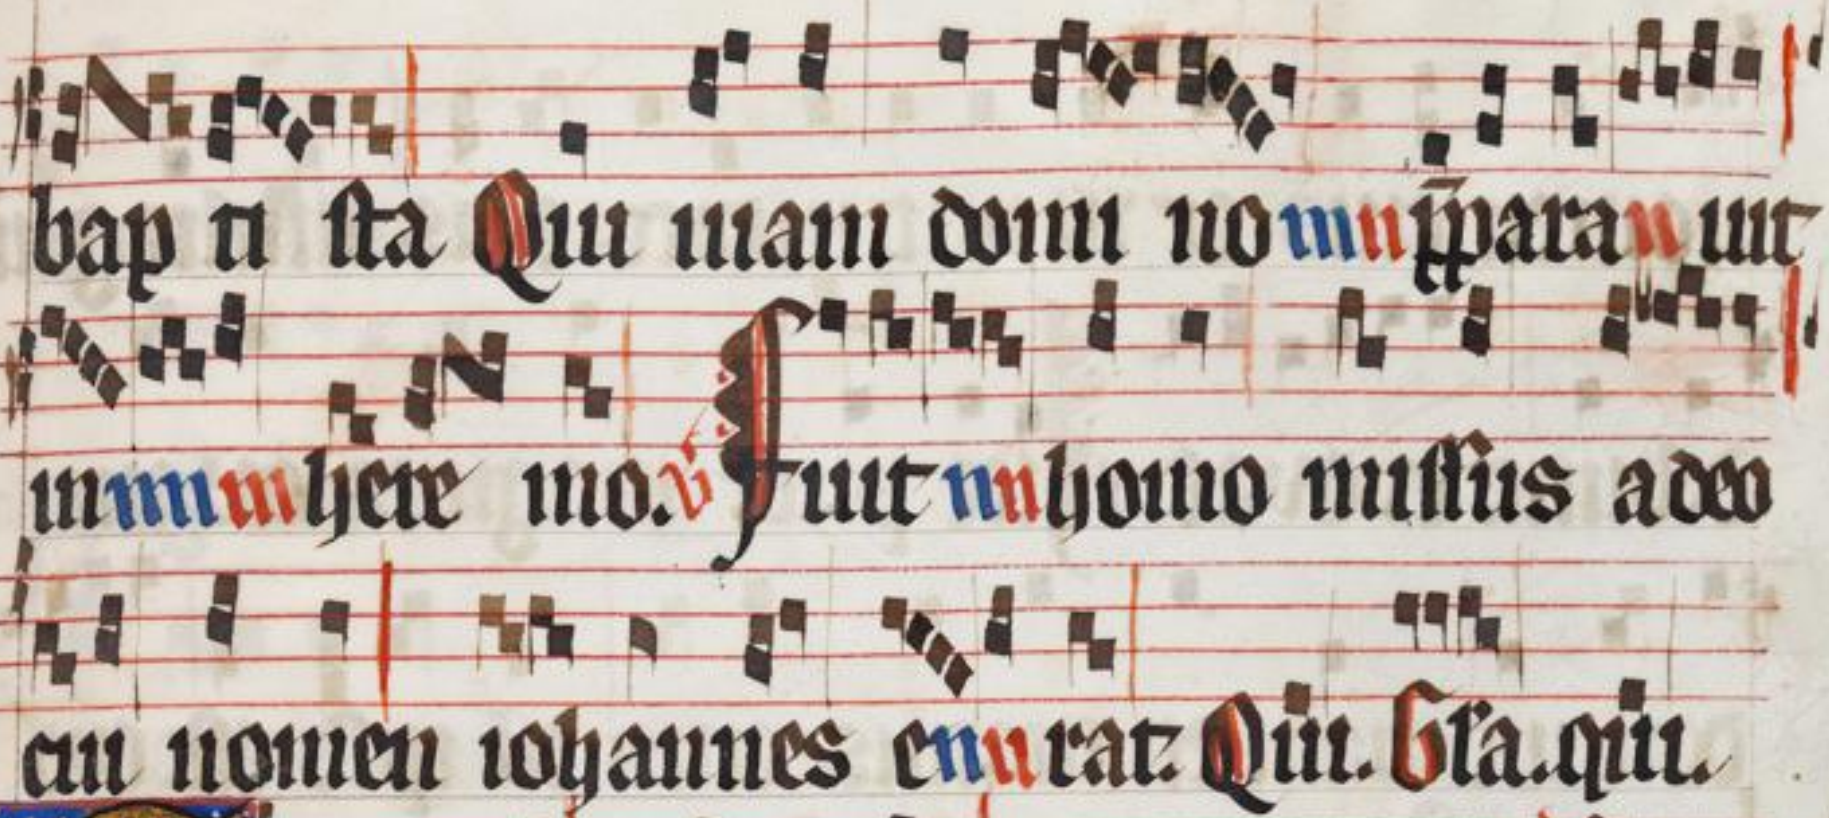 bap ti sta Qui uiam domi no p̄para uit
in here mo. v̄ Fuit homo missus a deo
cui nomen iohannes e rat. Qui. Gl'a. qui.